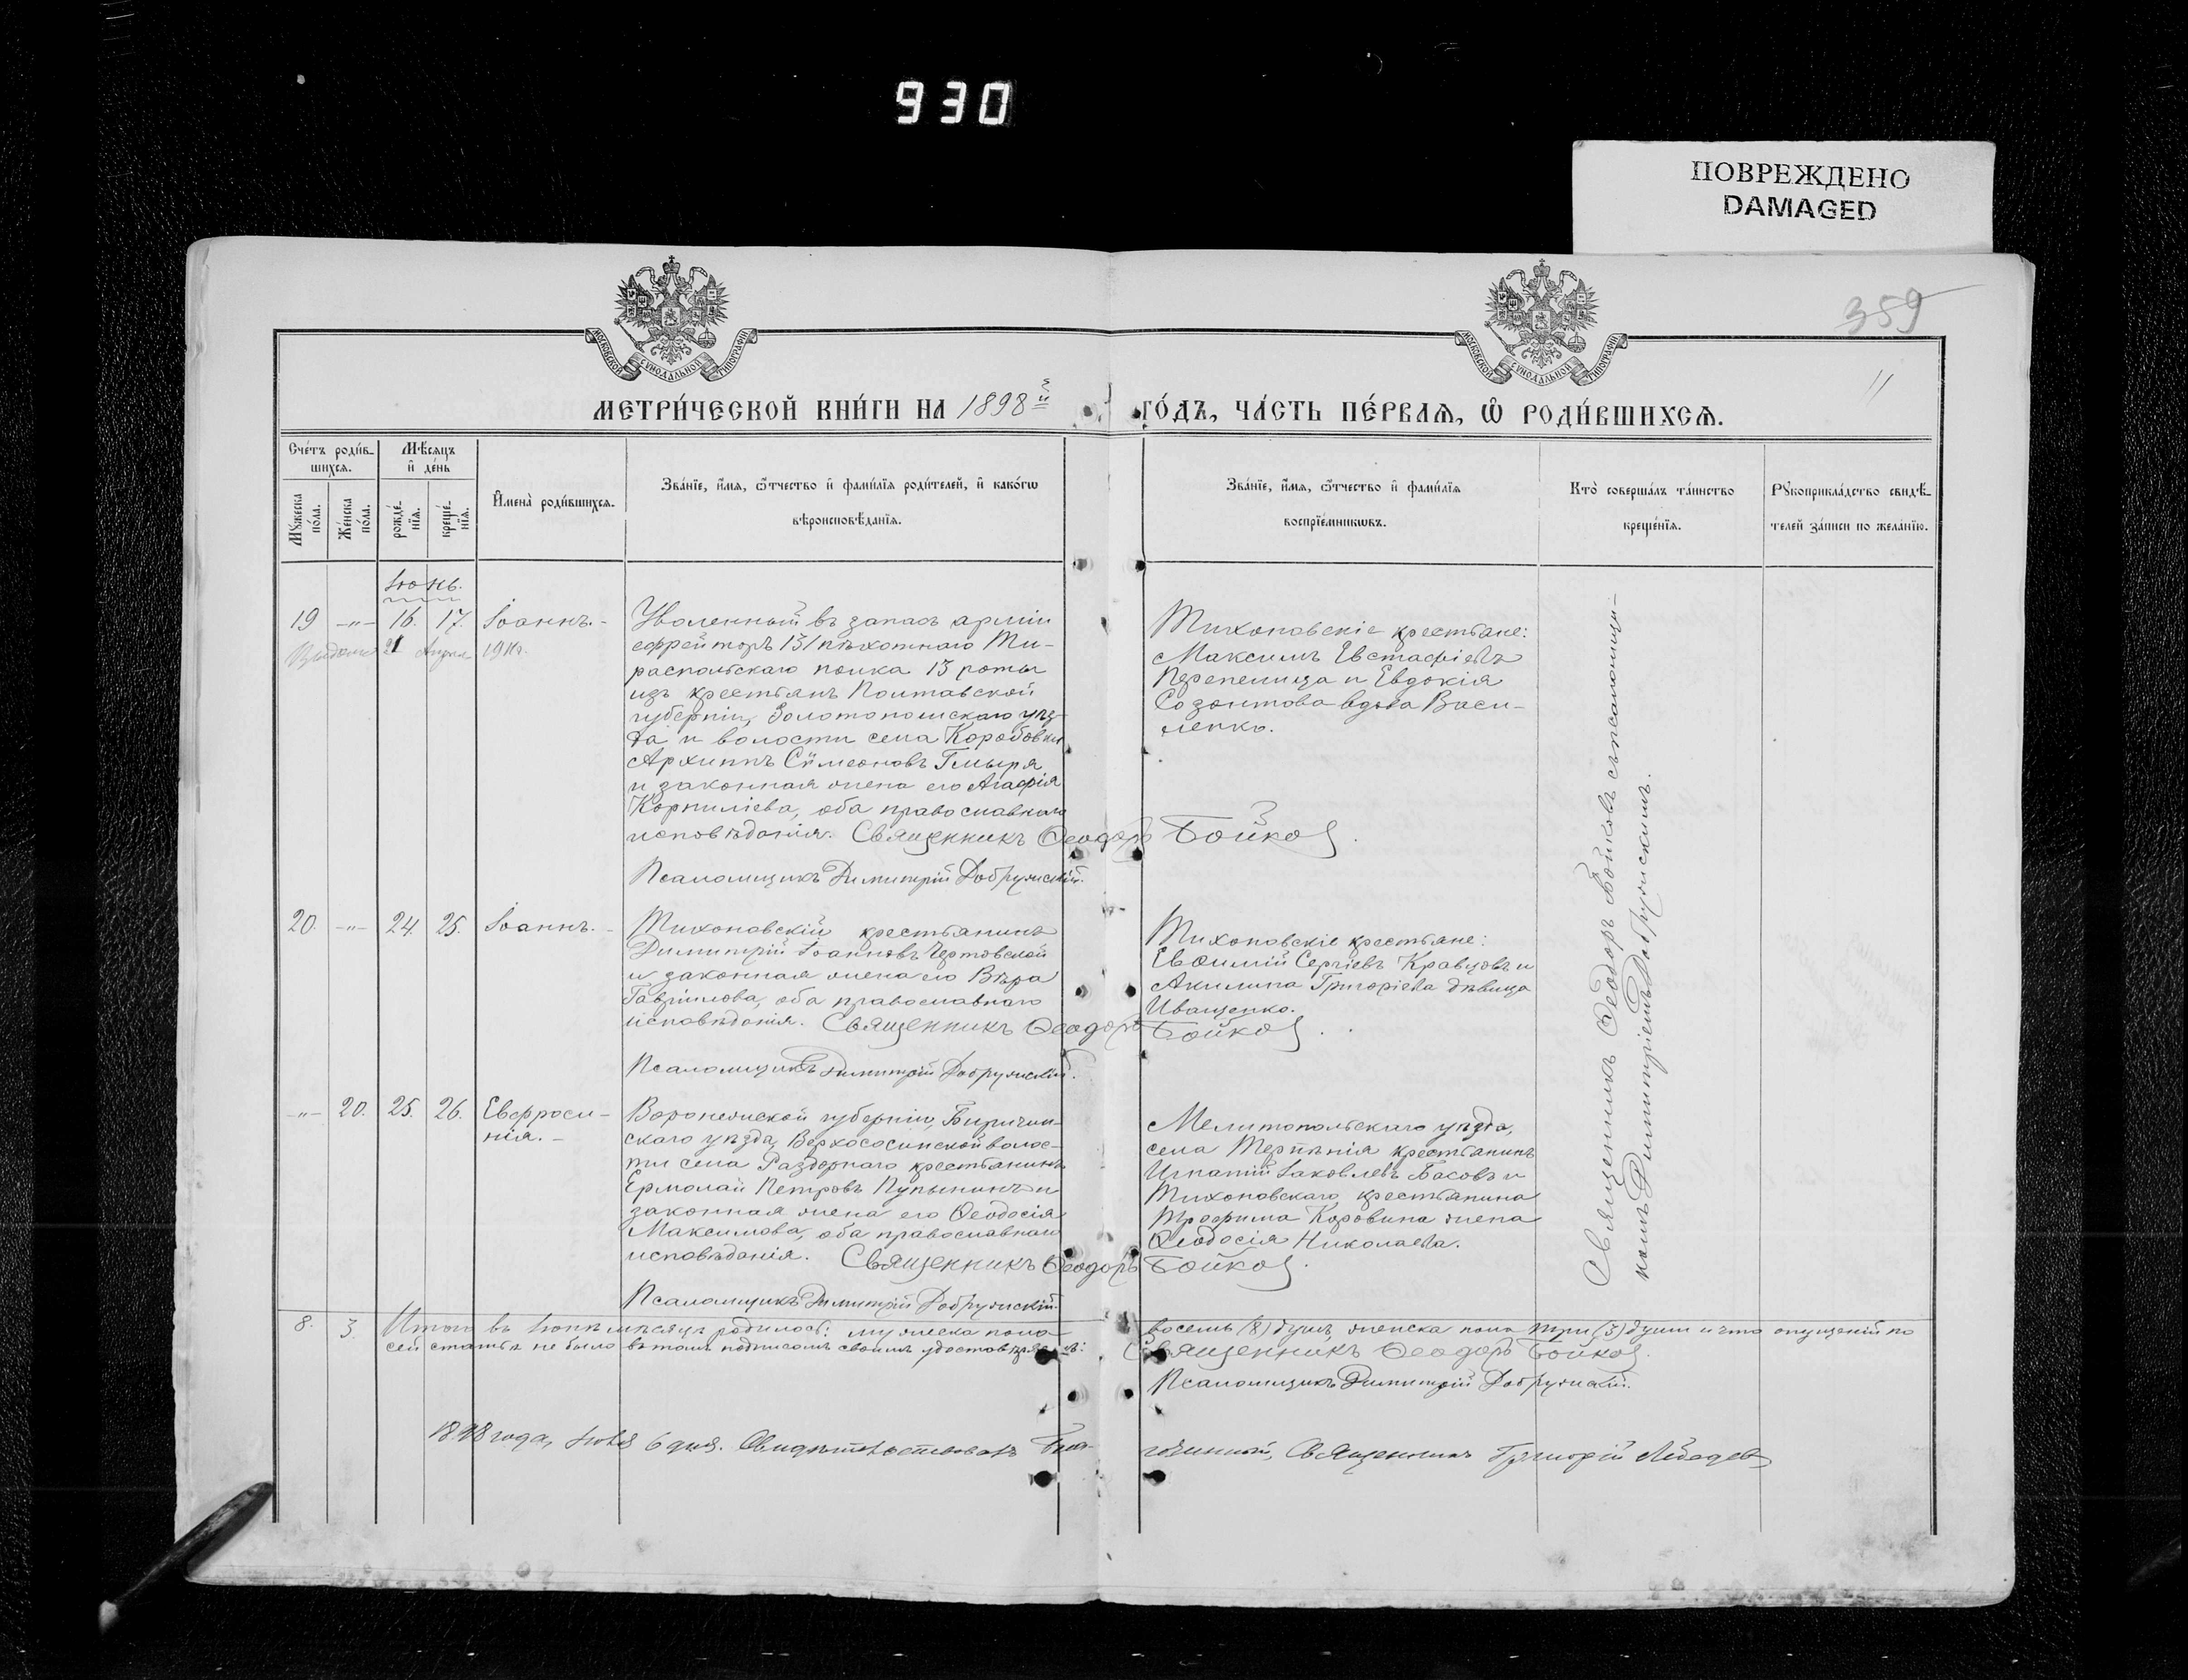 930
ПОВРЕЖДЕНО
DAMAGED
359
11
МОСКОВСКОЙ СѴНОДАЛЬНОЙ ТИПОГРАФІИ
МОСКОВСКОЙ СѴНОДАЛЬНОЙ ТИПОГРАФІИ
МЕТРИ́ЧЕСКОЙ КНИ́ГИ НА 1898й ГО́ДЪ, ЧА́СТЬ ПЕ́РВАѦ, Ѡ҆ РОДИ́ВШИХСѦ.
Сче́тъ роди́в-
шихсѧ.
Мѣ́сѧцъ
и҆ де́нь
Мꙋ́жеска по́ла.
Же́нска по́ла.
рожде́-нїѧ.
креще́-нїѧ.
И҆мена̀ роди́вшихсѧ.
Зва́нїе, и҆́мѧ, ѻ҆́тчество и҆ фами́лїѧ роди́телей, и҆ како́гѡ
вѣроисповѣ́данїѧ.
Зва́нїе, и҆́мѧ, ѻ҆́тчество и҆ фами́лїѧ
воспрїе́мникѡвъ.
Кто̀ соверша́лъ та́инство
креще́нїѧ.
Рꙋкоприкла́дство свидѣ́-
телей за́писи по жела́нїю.
Іюнь.
19 -„- 16. 17. Іоаннъ.-
21 Апреля 191
Уволенный въ запасъ арміи
ефрейторъ 131 пѣхотнаго Ти-
распольскаго полка 13 роты
изъ крестьянъ Полтавской
губерніи, Золотоношскаго уѣз-
да и волости села Коробовки
Архиппъ Сѵмеоновъ Гмыря
и законная жена его Агафія
Корниліева, оба православнаго
исповѣданія. Священникъ Ѳеодоръ Бойковъ.
Псаломщикъ Димитрій Добружскій.
Тихоновскіе крестьяне:
Максимъ Евстафіевъ
Перепелица и Евдокія
Созонтова вдова Васи-
ленко.
20. -„- 24. 25. Іоаннъ.-
Тихоновскій крестьянинъ
Димитрій Іоанновъ Чертовской
и законная жена его Вѣра
Гавріилова, оба православнаго
исповѣданія. Священникъ Ѳеодоръ Бойковъ.
Псаломщикъ Димитрій Добружскій.
Тихоновскіе крестьяне:
Евѳимій Сергіевъ Кравцовъ и
Акилина Григоріева дѣвица
Иващенко.
-„- 20. 25. 26. Евфроси-
нія.-
Воронежской губерніи, Бирючин-
скаго уѣзда, Верхососинской волос-
ти села Раздорнаго крестьянинъ
Ермолай Петровъ Пупынинъ и
законная жена его Ѳеодосія
Максимова, оба православнаго
исповѣданія. Священникъ Ѳеодоръ Бойковъ.
Псаломщикъ Димитрій Добружскій.
Мелитопольскаго уѣзда,
села Терпѣнія крестьянинъ
Игнатій Іаковлевъ Басовъ и
Тихоновскаго крестьянина
Трофима Коровина жена
Ѳеодосія Николаева.
Священникъ Ѳеодоръ Бойковъ съ псаломщи-
комъ Димитріемъ Добружскимъ.
8. 3. Итого въ Іюнѣ мѣсяцѣ родилось: мужеска пола восемь (8) душъ, женска пола три (3) души и что опущеній по
сей статьѣ не было въ томъ подписомъ своимъ удостовѣряемъ: Священникъ Ѳеодоръ Бойковъ.
Псаломщикъ Димитрій Добружскій.
1898 года, Іюля 6 дня. Свидѣтельствовалъ Благочинный, Священникъ Григорій Лебедевъ